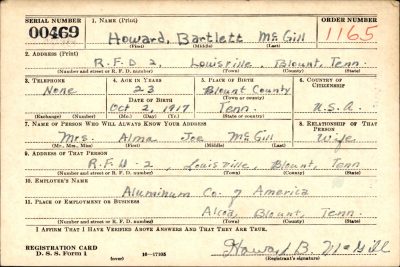 SERIAL NUMBER
00469
1. NAME (Print)
Howard, Bartlett McGill
(First) (Middle) (Last)
ORDER NUMBER
1165
2. ADDRESS (Print)
R.F.D 2, Louisville, Blount, Tenn.
(Number and street or R. F. D. number) (Town) (County) (State)
3. TELEPHONE
None
(Exchange) (Number)
4. AGE IN YEARS
23
DATE OF BIRTH
Oct 2, 1917
(Mo.) (Day) (Yr.)
5. PLACE OF BIRTH
Blount County
(Town or county)
Tenn.
(State or country)
6. COUNTRY OF CITIZENSHIP
U.S.A.
7. NAME OF PERSON WHO WILL ALWAYS KNOW YOUR ADDRESS
Mrs. Alma Joe McGill
(Mr., Mrs., Miss) (First) (Middle) (Last)
8. RELATIONSHIP OF THAT PERSON
Wife
9. ADDRESS OF THAT PERSON
R.F.D - 2, Louisville Blount, Tenn
(Number and street or R. F. D. number) (Town) (County) (State)
10. EMPLOYER'S NAME
Aluminum Co. of America
11. PLACE OF EMPLOYMENT OR BUSINESS
Alcoa, Blount, Tenn.
(Number and street or R. F. D. number) (Town) (County) (State)
I AFFIRM THAT I HAVE VERIFIED ABOVE ANSWERS AND THAT THEY ARE TRUE.
REGISTRATION CARD
D. S. S. Form 1
(over)
16-17105
Howard B. McGill
(Registrant's signature)